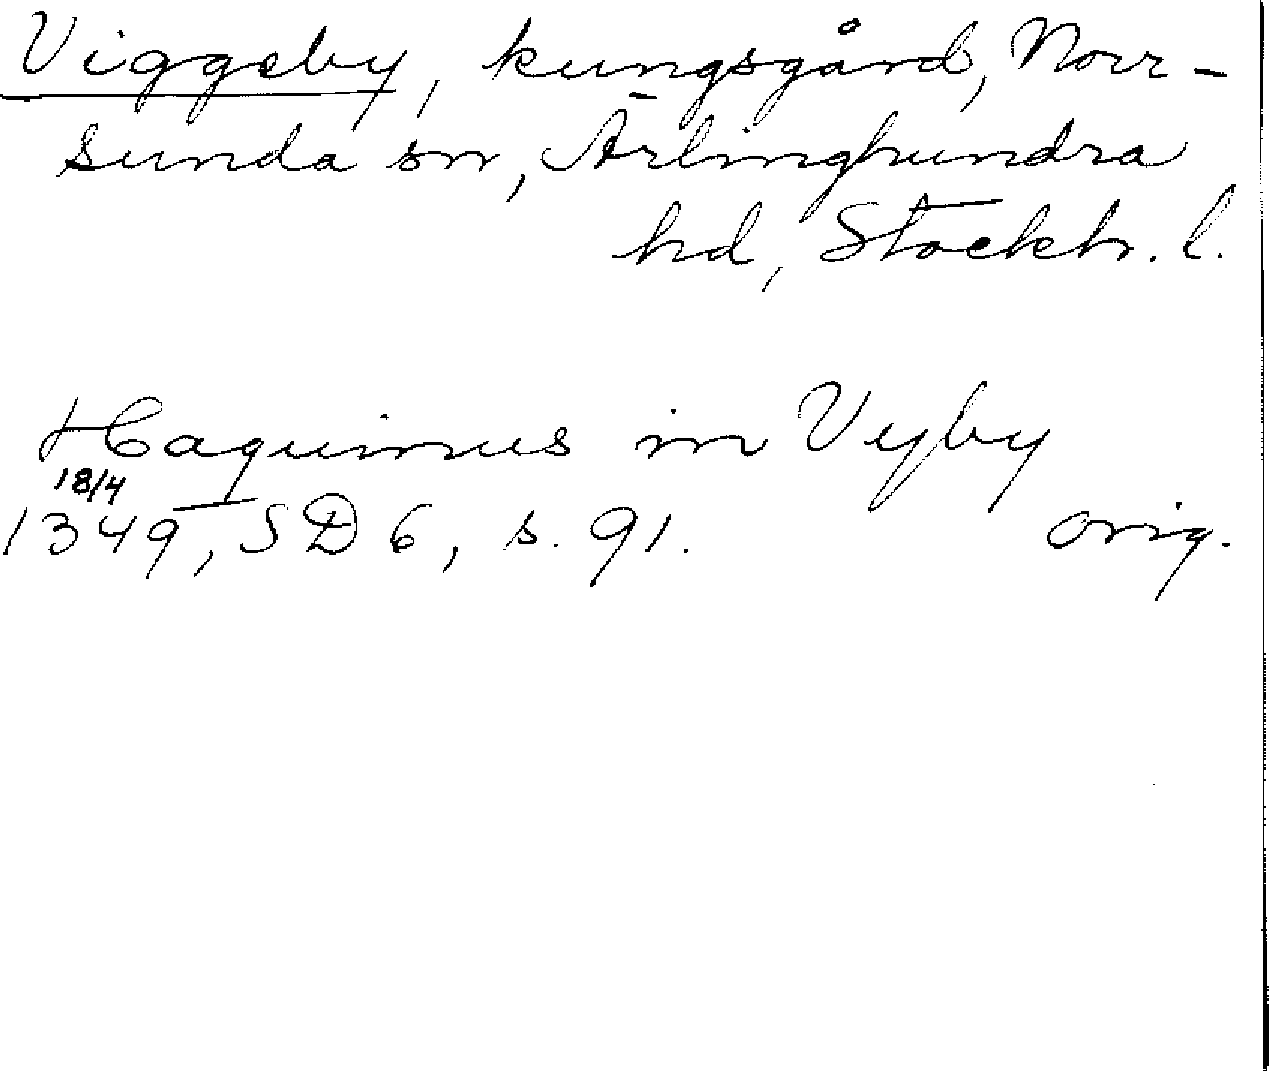 Viggeby, kungsgård, Norr-
sunda sn, Ärlinghundra
hd, Stockh. l.
Haquinus in Vyby
18/4
1349, SD 6, s. 91. orig.